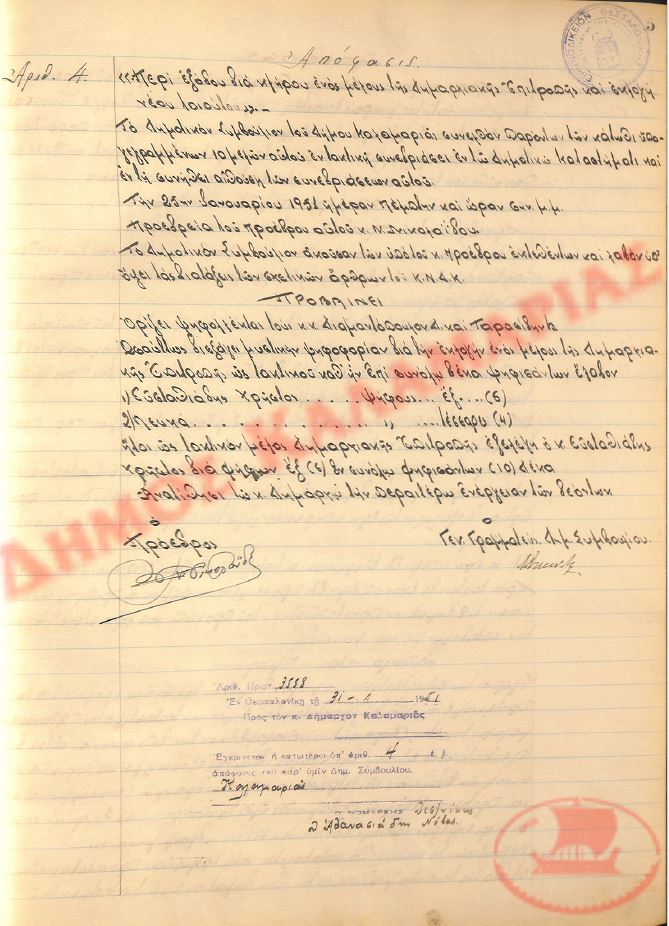 Ἀπόφασις.
Ἀριθ. 4.
«Περί ἐξόδου διά κλήρου ἑνός μέλους τῆς Δημαρχιακῆς Ἐπιτροπῆς καί ἐκλογή
νέου τοιούτου».-
Τό Δημοτικόν Συμβούλιον τοῦ Δήμου Καλαμαριᾶς συνελθόν παρόντων τῶν κάτωθι ὑπο-
γεγραμμένων 10 μελῶν αὐτοῦ ἐν τακτικῇ συνεδριάσει ἐν τῷ Δημοτικῷ καταστήματι καί
ἐν τῇ συνήθει αἰθούσῃ τῶν συνεδριάσεων αὐτοῦ.
Τήν 25ην Ἰανουαρίου 1951 ἡμέραν Πέμπτην καί ὥραν 5ην μ.μ.
Προεδρεία τοῦ προέδρου αὐτοῦ κ. Ν. Νικολαΐδου.
Τό Δημοτικόν Συμβούλιον ἀκοῦσαν τῶν ὑπό τοῦ κ. προέδρου ἐκτεθέντων καί λαβόν ὑπ'
ὄψει τάς διατάξεις τῶν σχετικῶν ἄρθρων τοῦ Κ.Ν.Δ.Κ.
ΠΡΟΒΑΙΝΕΙ
Ὁρίζει ψηφολέκτας τούς κ.κ. Διαμαντόπουλον Δ. καί
Ὡσαύτως διεξάγει μυστικήν ψηφοφορίαν διά τήν ἐκλογήν ἑνός μέλους τῆς Δημαρχια-
κῆς Ἐπιτροπῆς ὡς τακτικοῦ καθ' ἥν ἐπί συνόλου δέκα ψηφισάντων ἔλαβον
1) Εὐσταθιάδης Χρῆστος . . . . . . ψήφους . . . ἕξ . . . (6)
2) Λευκά . . . . . . . . . . . . . . „ . . . . . τέσσαρα (4)
ἤτοι ὡς τακτικόν μέλος Δημαρχιακῆς Ἐπιτροπῆς ἐξελέγη ὁ κ. Εὐσταθιάδης
Χρῆστος διά ψήφων ἕξ (6) ἐν συνόλῳ ψηφισάντων (10) δέκα
Ἀνατίθησι τῷ κ. Δημάρχῳ τήν περαιτέρω ἐνέργειαν τῶν δεόντων
Ὁ
Πρόεδρος
Ὁ
Γεν. Γραμματεύς Δημ. Συμβουλίου.
ΔΗΜΟΣ ΚΑΛΑΜΑΡΙΑΣ
Ἀριθ. Πρωτ. 3558
Ἐν Θεσσαλονίκῃ τῇ 31-1 1951
Πρός τόν κ. Δήμαρχον Καλαμαριᾶς
Ἐγκρίνεται ἡ κατωτέρω ὑπ' ἀριθ. 4 ἔ. ἔ.
ἀπόφασις τοῦ παρ' ὑμῖν Δημ. Συμβουλίου.
Καλαμαριᾶς
Ο ΝΟΜΑΡΧΗΣ Θεσ/νίκης